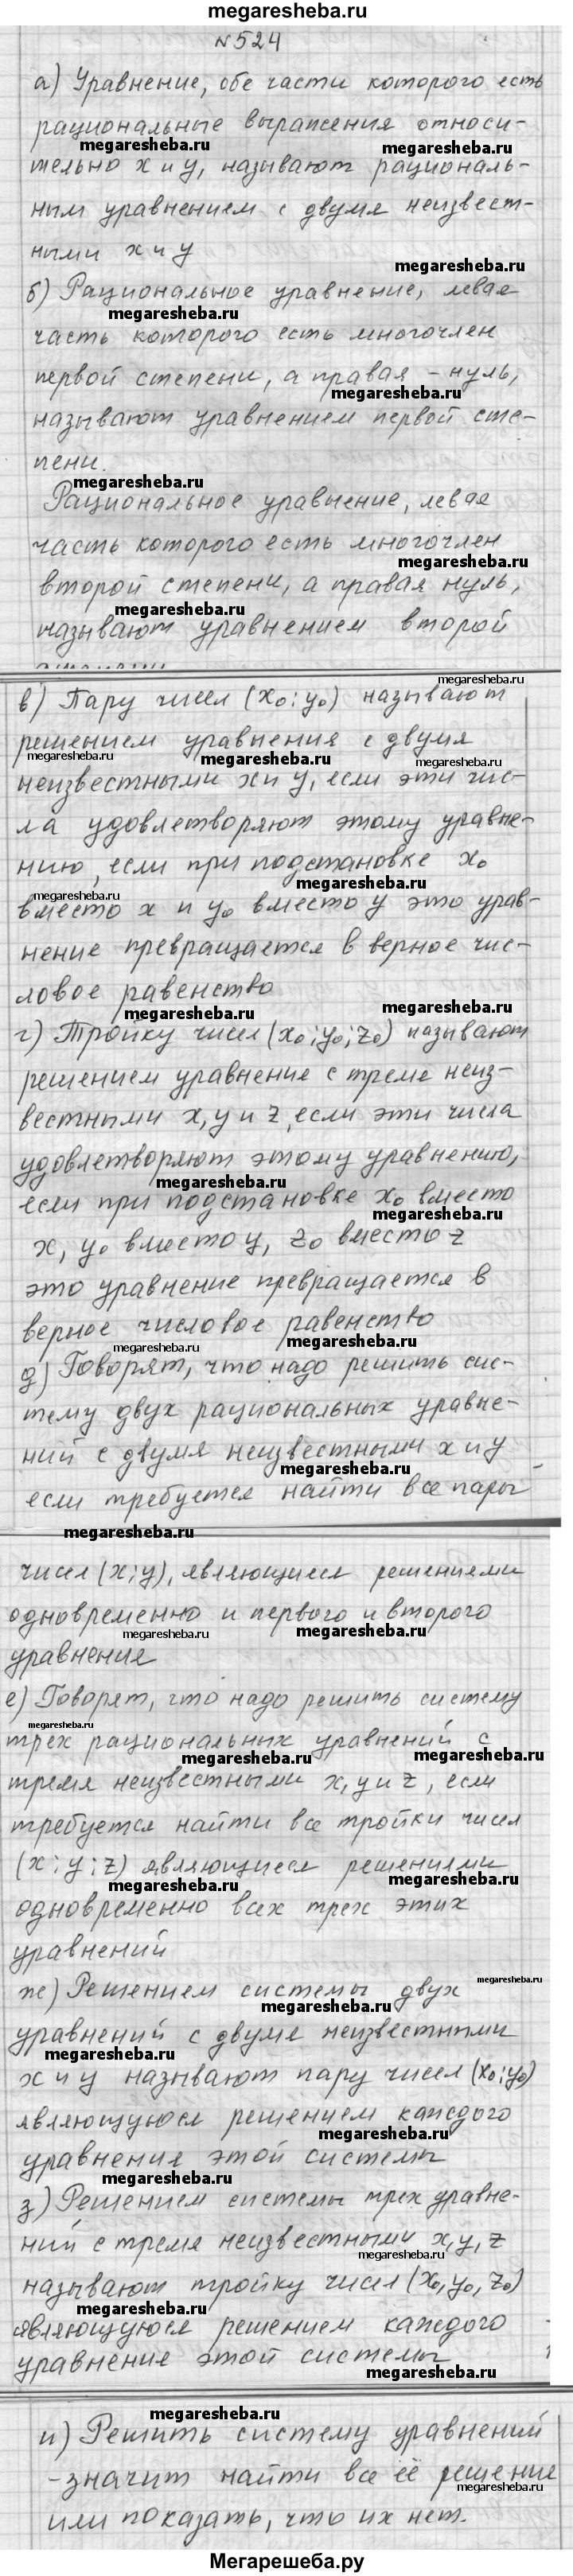 megaresheba.ru
№524
а) Уравнение, обе части которого есть
рациональные выражения относи-
тельно х и у, называют рациональ-
ным уравнением с двумя неизвест-
ными х и у
б) Рациональное уравнение, левая
часть которого есть многочлен
первой степени, а правая - нуль,
называют уравнением первой сте-
пени.
Рациональное уравнение, левая
часть которого есть многочлен
второй степени, а правая нуль,
называют уравнением второй
в) Пару чисел (х₀; у₀) называют
решением уравнения с двумя
неизвестными х и у, если эти чис-
ла удовлетворяют этому уравне-
нию, если при подстановке х₀
вместо х и у₀ вместо у это урав-
нение превращается в верное чис-
ловое равенство
г) Тройку чисел (х₀; у₀; z₀) называют
решением уравнение с треме неиз-
вестными х, у и z, если эти числа
удовлетворяют этому уравнению,
если при подстановке х₀ вместо
х, у₀ вместо у, z₀ вместо z
это уравнение превращается в
верное числовое равенство
д) Говорят, что надо решить сис-
тему двух рациональных уравне-
ний с двумя неизвестными х и у
если требуется найти все пары
чисел (х; у), являющиеся решениями
одновременно и первого и второго
уравнения
е) Говорят, что надо решить систему
трех рациональных уравнений с
тремя неизвестными х, у и z, если
требуется найти все тройки чисел
(х; у; z) являющиеся решениями
одновременно всех трех этих
уравнений
ж) Решением системы двух
уравнений с двумя неизвестными
х и у называют пару чисел (х₀; у₀)
являющуюся решением каждого
уравнения этой системы
з) Решением системы трех уравне-
ний с тремя неизвестными х, у, z
называют тройку чисел (х₀, у₀, z₀)
являющуюся решением каждого
уравнение этой системы
и) Решить систему уравнений
-значит найти все её решение
или показать, что их нет.
Мегарешеба.ру